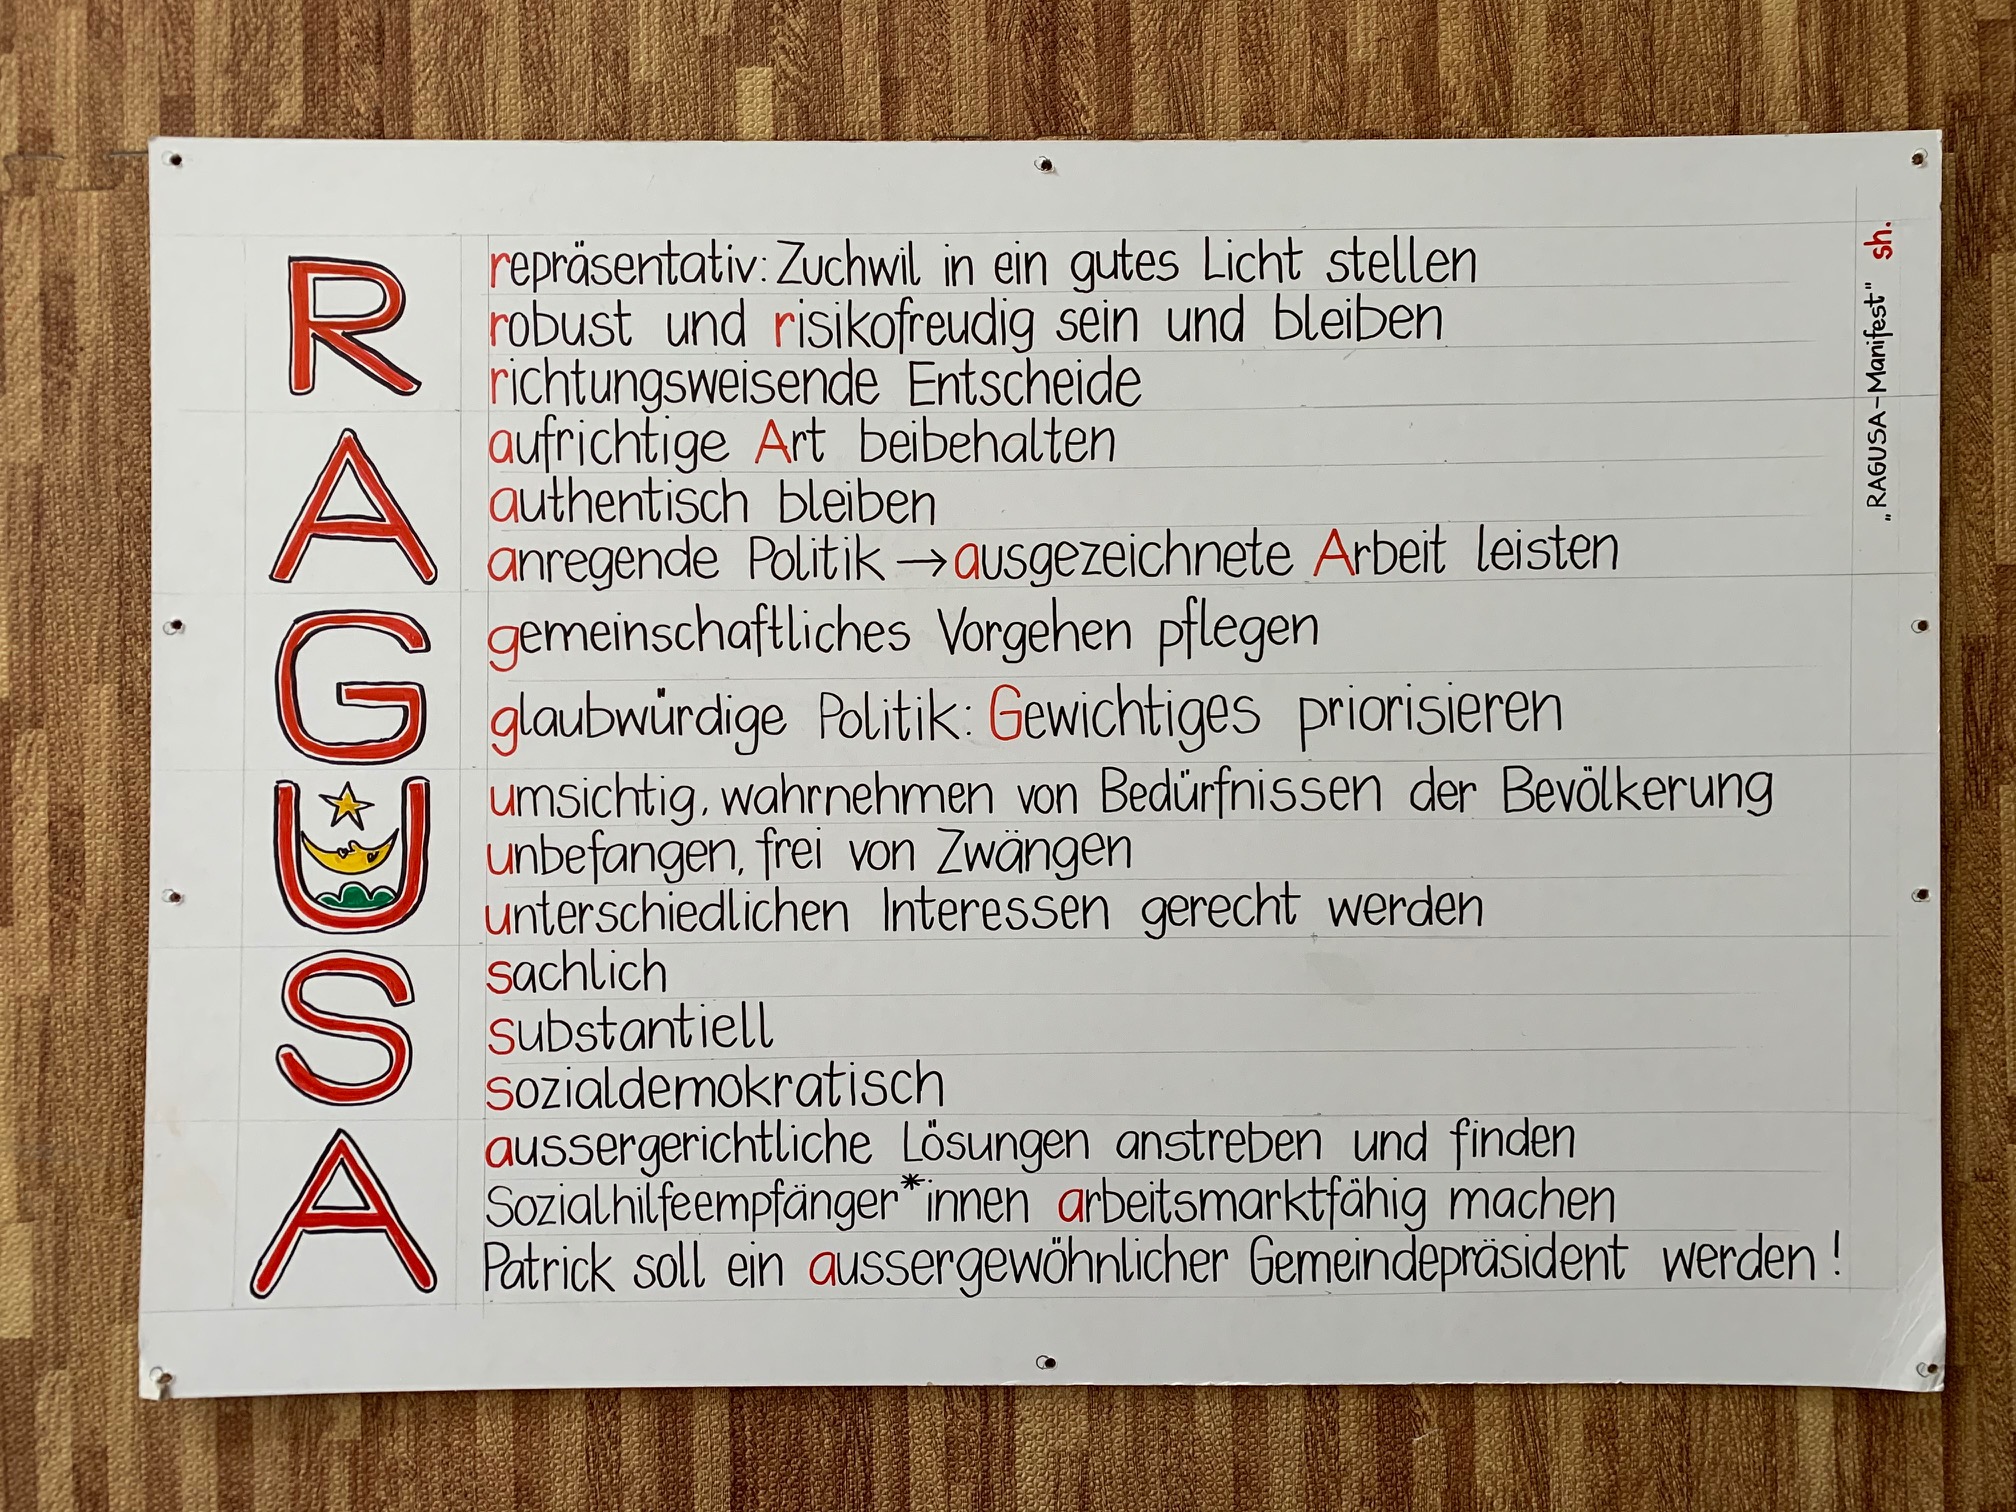 RAGUSA
repräsentativ: Zuchwil in ein gutes Licht stellen
robust und risikofreudig sein und bleiben
richtungsweisende Entscheide
aufrichtige Art beibehalten
authentisch bleiben
anregende Politik → ausgezeichnete Arbeit leisten
gemeinschaftliches Vorgehen pflegen
glaubwürdige Politik: Gewichtiges priorisieren
umsichtig, wahrnehmen von Bedürfnissen der Bevölkerung
unbefangen, frei von Zwängen
unterschiedlichen Interessen gerecht werden
sachlich
substantiell
sozialdemokratisch
aussergerichtliche Lösungen anstreben und finden
Sozialhilfeempfänger*innen arbeitsmarktfähig machen
Patrick soll ein aussergewöhnlicher Gemeindepräsident werden!
„RAGUSA-Manifest" sh.